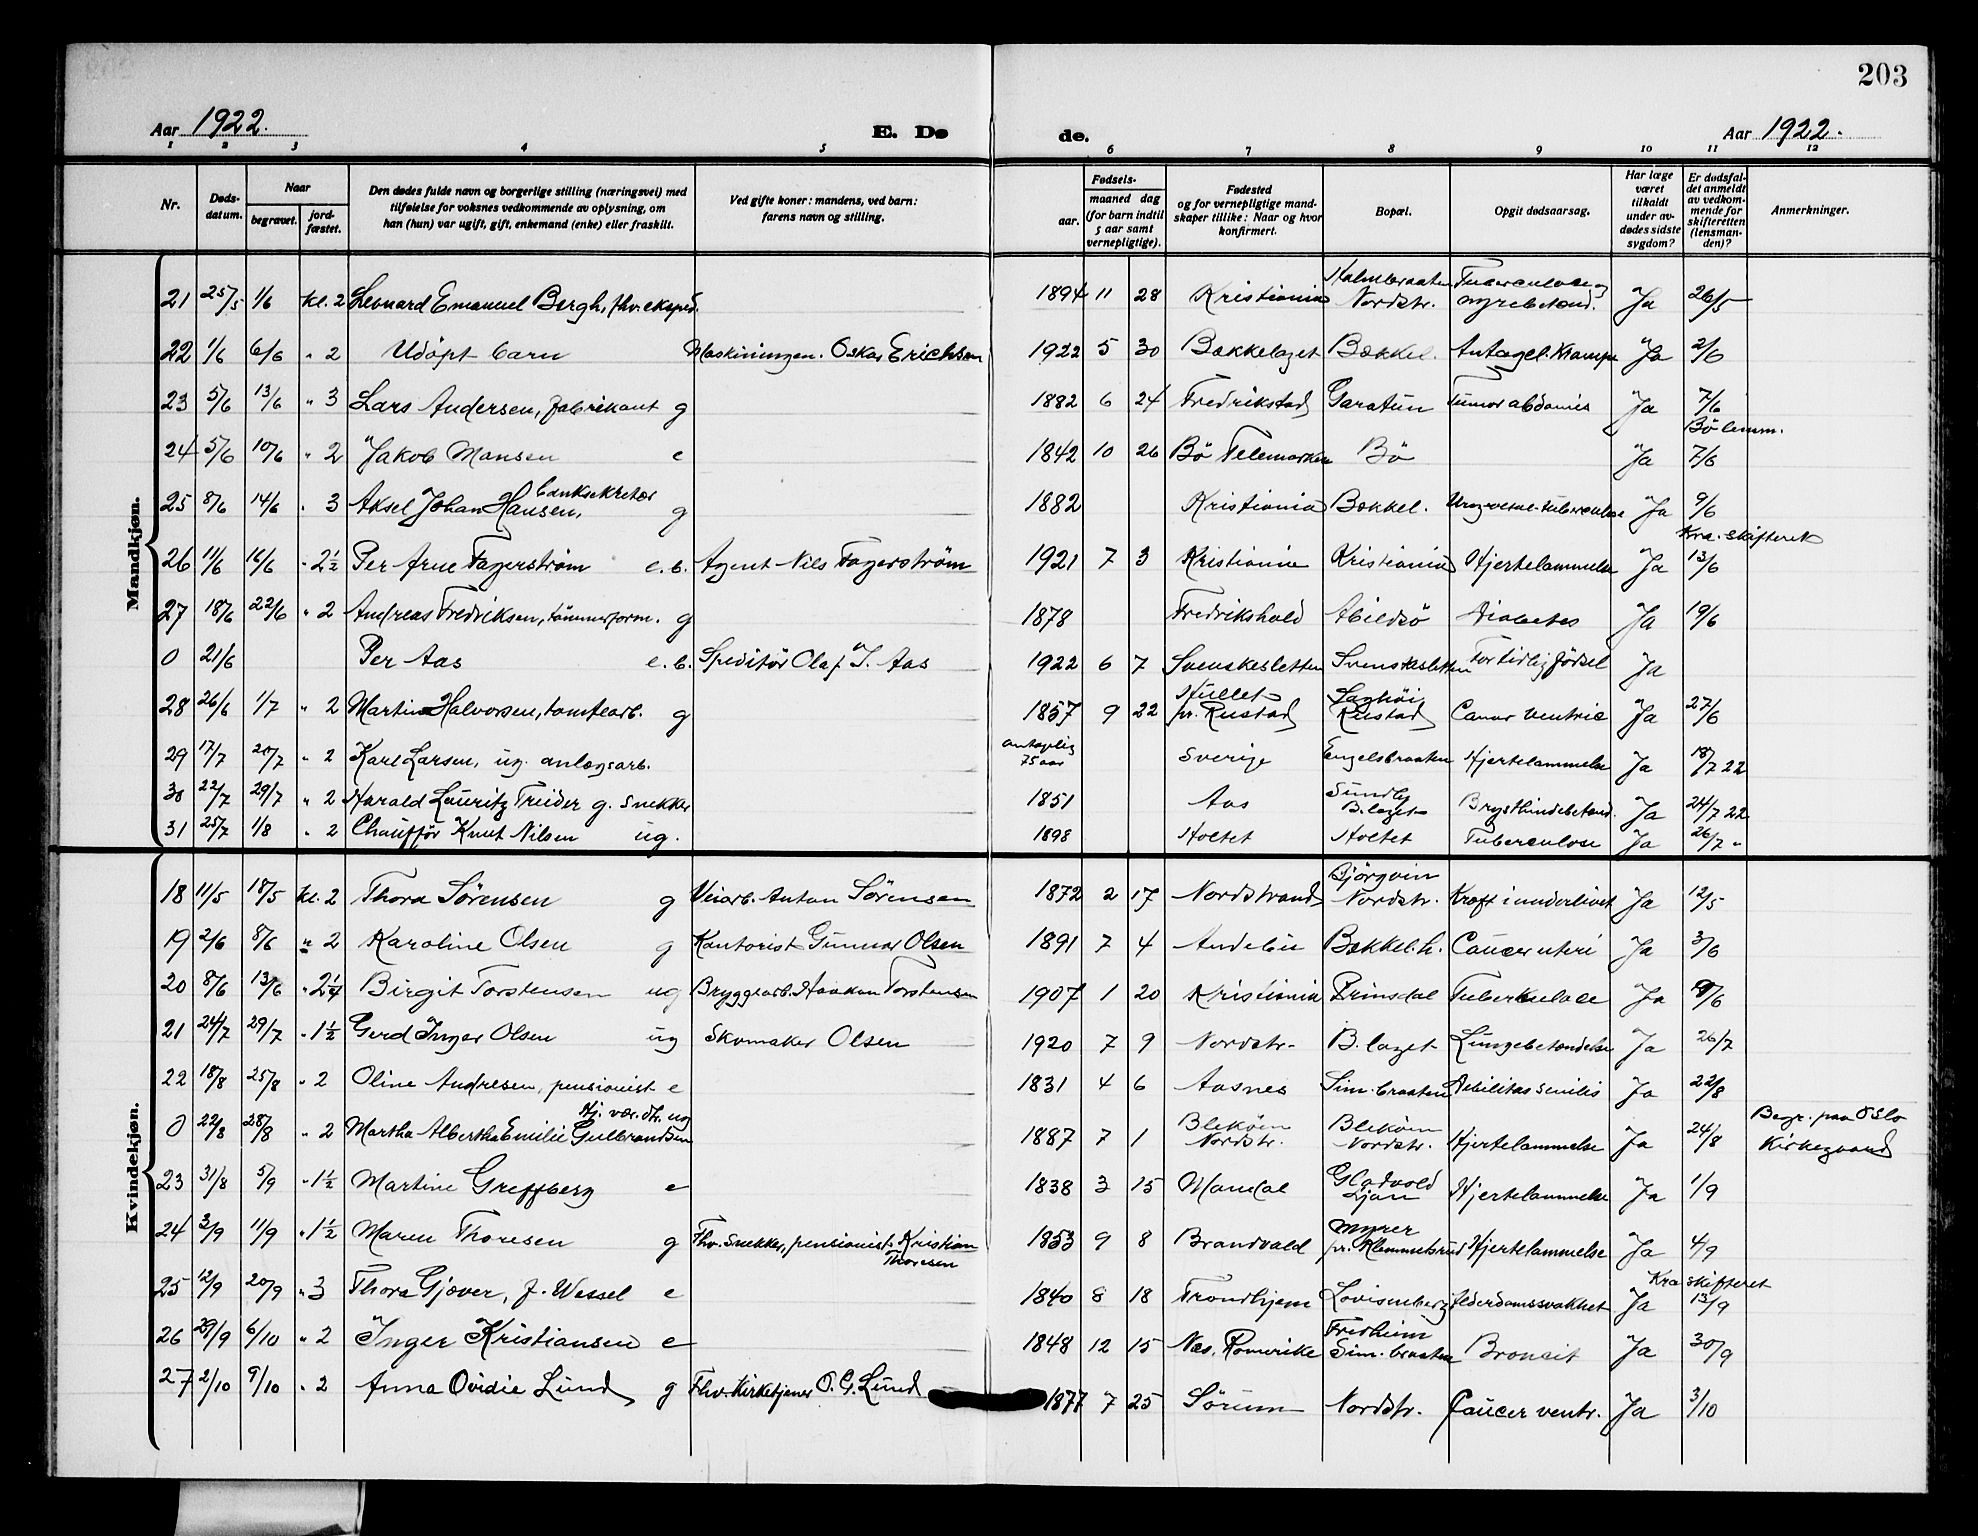 203
Aar 1922. E. Dø de. Aar 1922.
1 2 3 4 5 6 7 8 9 10 11 12
Nr. Døds-datum. Naar begravet. jord-fæstet. Den dødes fulde navn og borgerlige stilling (næringsvei) med tilføielse for voksnes vedkommende av oplysning, om han (hun) var ugift, gift, enkemand (enke) eller fraskilt. Ved gifte koner: mandens, ved barn: farens navn og stilling. Fødsels- aar. maaned dag (for barn indtil 5 aar samt vernepligtige). Fødested og for vernepligtige mandskaper tillike: Naar og hvor konfirmert. Bopæl. Opgit dødsaarsag. Har læge været tilkaldt under avdødes sidste sygdom? Er dødsfaldet anmeldt av vedkommende for skifteretten (lensmanden)? Anmerkninger.
Mandkjøn.
21 25/5 1/6 kl. 2 Leonard Emanuel Bergh, fhv. eksped. 1894 11 28 Kristiania Nordstr. Tuberculose og nyrebetænd. Ja 26/5
22 1/6 6/6 " 2 Udöpt barn Maskiningen. Oskar Erichsen 1922 5 30 Bækkelaget Bækkel. Antagel. Krampe Ja 2/6
23 5/6 13/6 " 3 Lars Andersen, fabrikant g 1882 6 24 Fredrikstad Garatun Tumor abdomis Ja 7/6
24 5/6 10/6 " 2 Jakob Mansen e 1842 10 26 Bö Telemarken Bö Ja Bö lensm. 7/6
25 8/6 14/6 " 3 Aksel Johan Hansen, banksekretær g 1882 Kristiania Bækkel. Ja 9/6
26 11/6 16/6 " 2½ Per Arne Fagerström e.b. Agent Nils Fagerström 1921 7 3 Kristiania Kristiania Hjertelammelse Ja Kra. skifteret 13/6
27 18/6 22/6 " 2 Andreas Fredriksen, tömmerform. g 1878 Fredrikshald Abildsö Diabetes Ja 19/6
0 21/6 Per Aas e.b. Speditör Olaf J. Aas 1922 6 7 Svenskesletten Svenskesletten For tidlig födsel Ja
28 26/6 1/7 " 2 Martin Halvorsen, tomtearb. g 1857 9 22 pr. Rustad Rustad Cancer ventric Ja 27/6
29 17/7 20/7 " 2 Karl Larsen, ug. anlægsarb. antagelig 75 aar Sverige Engelsbraaten Hjertelammelse Ja 18/7 22
30 22/7 29/7 " 2 Harald Lauritz Treider g. snekker 1851 Aas Sundby B.laget Brysthindebetænd. Ja 24/7 22
31 25/7 1/8 " 2 Chauffför Knut Nilsen ug. 1898 Holtet Holtet Tuberculose Ja 26/7 "
Kvindekjøn.
18 11/5 18/5 kl. 2 Thora Sörensen g Veiarb. Anton Sörensen 1872 2 17 Nordstrand Björgvin Nordstr. Kræft i underlivet Ja 12/5
19 2/6 8/6 " 2 Karoline Olsen g Kontorist Gunnar Olsen 1891 7 4 Andebu Bækkel.h. Cancer uteri Ja 3/6
20 8/6 13/6 " 2¼ Birgit Torstensen ug Bryggearb. Haakon Torstensen 1907 1 20 Kristiania Prinsdal Tuberkulose Ja 9/6
21 24/7 29/7 " 1½ Gerd Inger Olsen ug Skomaker Olsen 1920 7 9 Nordstr. B.laget Lungebetændelse Ja 26/7
22 18/8 25/8 " 2 Oline Andresen, pensionist e 1831 4 6 Aasnes Sim.braaten Debilitas senilis Ja 22/8
0 22/8 28/8 " 2 Martha Albertha Emilie Gulbrandsen Hj. vær. dtr. ug 1887 7 1 Bleköin Nordstr. Bleköin Nordstr. Hjertelammelse Ja 24/8 Begr. paa Oslo Kirkegaard
23 31/8 5/9 " 1½ Martine Greffberg e 1838 3 15 Mandal Gladvold Ljan Hjertelammelse Ja 1/9
24 3/9 11/9 " 1½ Maren Thoresen g Fhv. snekker, pensionist Kristian Thoresen 1853 9 8 Brandvald Myrer pr. Klemmetsrud Hjertelammelse Ja 4/9
25 12/9 20/9 " 3 Thora Gjæver, f. Wessel e 1840 8 18 Trondhjem Lovisenberg Alderdomssvakhet Ja Kra skifteret 13/9
26 29/9 6/10 " 2 Inger Kristiansen e 1848 12 15 Næs, Romerike Fredheim Sim.braaten Broncit Ja 30/9
27 2/10 9/10 " 2 Anna Ovidie Lund g Fhv. Kirketjener O. G. Lund 1877 7 25 Sörum Nordstr. Cancer ventr. Ja 3/10